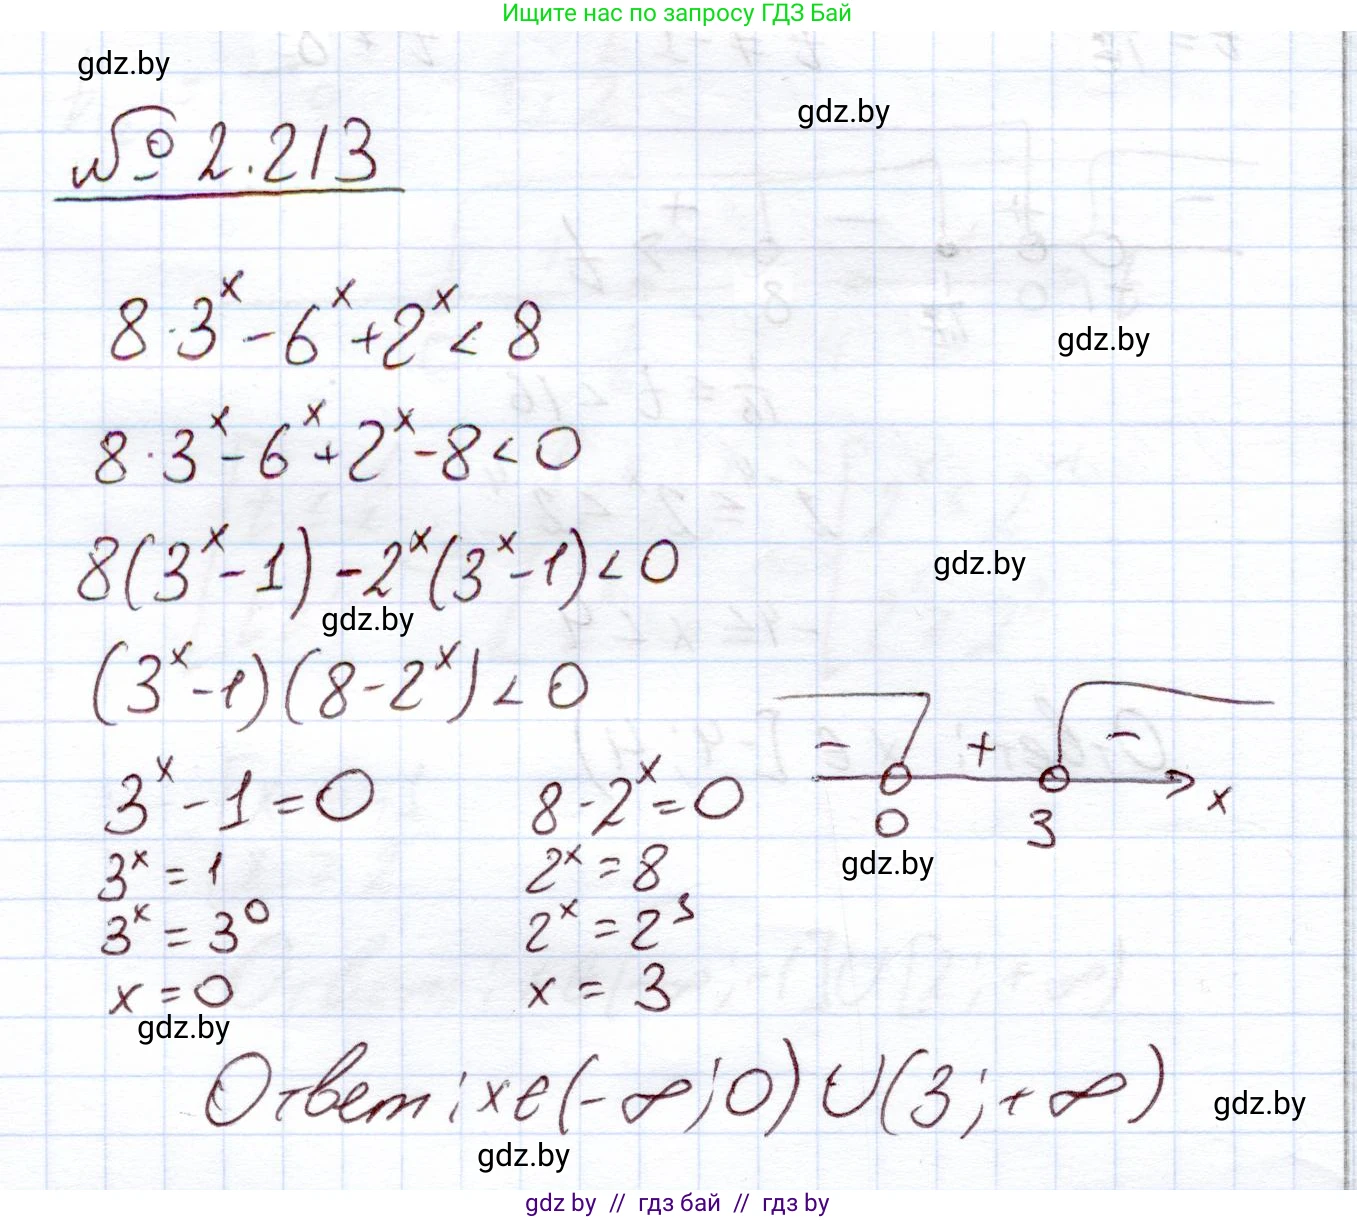 Ищите нас по запросу ГДЗ Бай
gdz.by
gdz.by
№ 2.213
8·3^x - 6^x + 2^x < 8
gdz.by
8·3^x - 6^x + 2^x - 8 < 0
8(3^x - 1) - 2^x(3^x - 1) < 0
gdz.by
gdz.by
(3^x - 1)(8 - 2^x) < 0
- + -
0 3 x
gdz.by
3^x - 1 = 0 8 - 2^x = 0
3^x = 1 2^x = 8
3^x = 3^0 2^x = 2^3
x = 0 x = 3
gdz.by
Ответ: x∈(-∞; 0) ∪ (3; +∞)
gdz.by
gdz.by
gdz by // гдз бай // гдз by